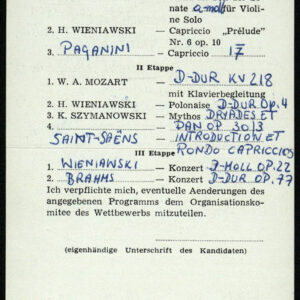 nate a-moll für Violi-
ne Solo
2. H. WIENIAWSKI — Capriccio „Prélude"
Nr. 6 op. 10
3. PAGANINI — Capriccio 17
II Etappe
1. W. A. MOZART — D-DUR KV 218
mit Klavierbegleitung
2. H. WIENIAWSKI — Polonaise D-DUR Op. 4
3. K. SZYMANOWSKI — Mythos DRYADES ET
4. PAN OP. 30/3
SAINT-SAËNS INTRODUCTION ET
RONDO CAPRICCIOS
III Etappe
1. WIENIAWSKI — Konzert D-MOLL OP. 22
2. BRAHMS — Konzert D-DUR OP. 77
Ich verpflichte mich, eventuelle Aenderungen des
angegebenen Programms dem Organisationsko-
mitee des Wettbewerbs mitzuteilen.
(eigenhändige Unterschrift des Kandidaten)